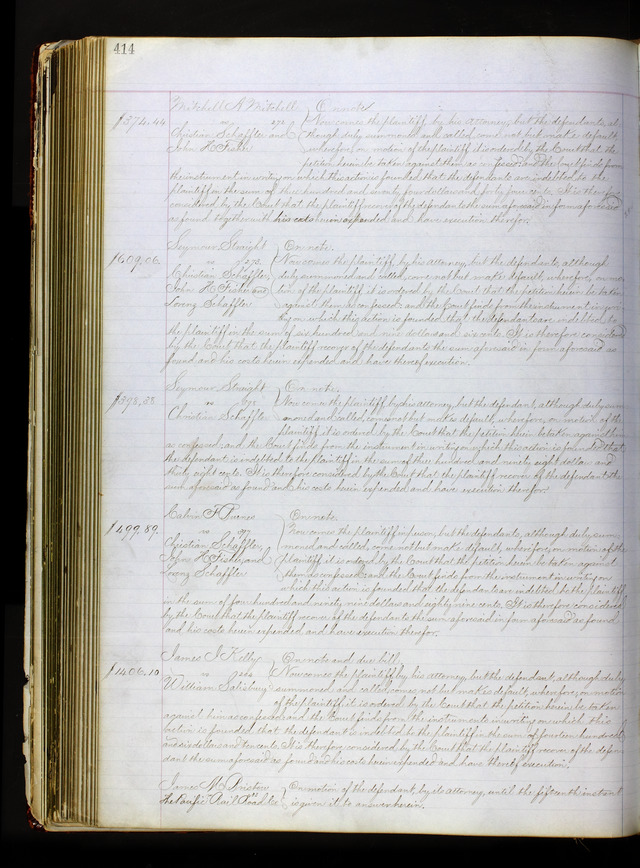 414
Mitchell & Mitchell } On note
$374.44 vs 272 Now comes the plaintiff by his attorney, but the defendants, al-
Christian Schaffler and though duly summoned and called, come not but make default
John H. Fisher wherefore, on motion of the plaintiff it is ordered by the Court that the
petition herein be taken against them as confessed and the Court finds from
the instrument in writing on which this action is founded that the defendants are indebted to the
plaintiff in the sum of three hundred and seventy four dollars and forty four cents. It is therefore
considered by the Court that the plaintiff recover of the defendants the sum aforesaid in form aforesaid
as found together with his costs herein expended and have execution therefor.
Seymour Straight } On note.
$609.06. vs 275. Now comes the plaintiff by his attorney, but the defendants, although
Christian Schaffler, duly summoned and called, come not but make default, wherefore, on mo-
John H. Fisher and tion of the plaintiff it is ordered by the Court that the petition herein be taken
Lorenz Schaffler against them as confessed; and the Court finds from the instrument in wri-
ting on which this action is founded, that the defendants are indebted to
the plaintiff in the sum of six hundred and nine dollars and six cents. It is therefore considered
by the Court that the plaintiff recover of the defendants the sum aforesaid in form aforesaid as
found and his costs herein expended and have thereof execution.
Seymour Straight } On note.
$398.38 vs Now comes the plaintiff by his attorney, but the defendant, although duly sum-
Christian Schaffler moned and called, comes not but makes default, wherefore, on motion of the
plaintiff it is ordered by the Court that the petition herein be taken against him
as confessed; and the Court finds from the instrument in writing on which this action is founded that
the defendant is indebted to the plaintiff in the sum of three hundred and ninety eight dollars and
thirty eight cents. It is therefore considered by the Court that the plaintiff recover of the defendant the
sum aforesaid as found and his costs herein expended and have execution therefor.
Calvin F } On note.
$499.89. vs Now comes the plaintiff in person, but the defendants, although duly sum-
Christian Schaffler, moned and called, come not but make default, wherefore, on motion of the
John H. Fisher, and plaintiff it is ordered by the Court that the petition herein be taken against
Lorenz Schaffler them as confessed; and the Court finds from the instrument in writing on
which this action is founded that the defendants are indebted to the plaintiff
in the sum of four hundred and ninety nine dollars and eighty nine cents. It is therefore considered
by the Court that the plaintiff recover of the defendants the sum aforesaid in form aforesaid as found
and his costs herein expended and have execution therefor.
James J Kelly } On note and due bill.
$1406.10 vs Now comes the plaintiff by his attorney, but the defendant, although duly
William Salisbury summoned and called, comes not but makes default, wherefore, on motion
of the plaintiff it is ordered by the Court that the petition herein be taken
against him as confessed; and the Court finds from the instruments in writing on which this
action is founded that the defendant is indebted to the plaintiff in the sum of fourteen hundred
and six dollars and ten cents. It is therefore considered by the Court that the plaintiff recover of the defen-
dant the sum aforesaid as found and his costs herein expended and have thereof execution.
James M Bristow } On motion of the defendant, by its attorney, until the fifteenth instant
The Pacific Rail Road Co is given it to answer herein.